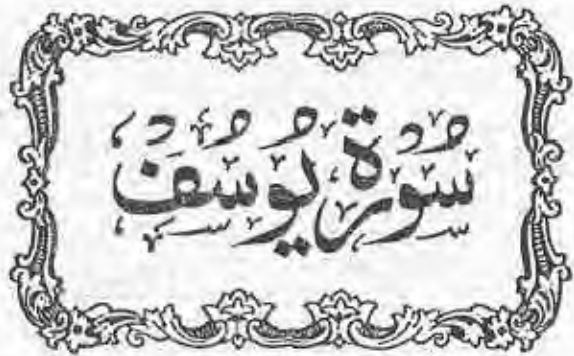 سُورَة يُوسُفَ